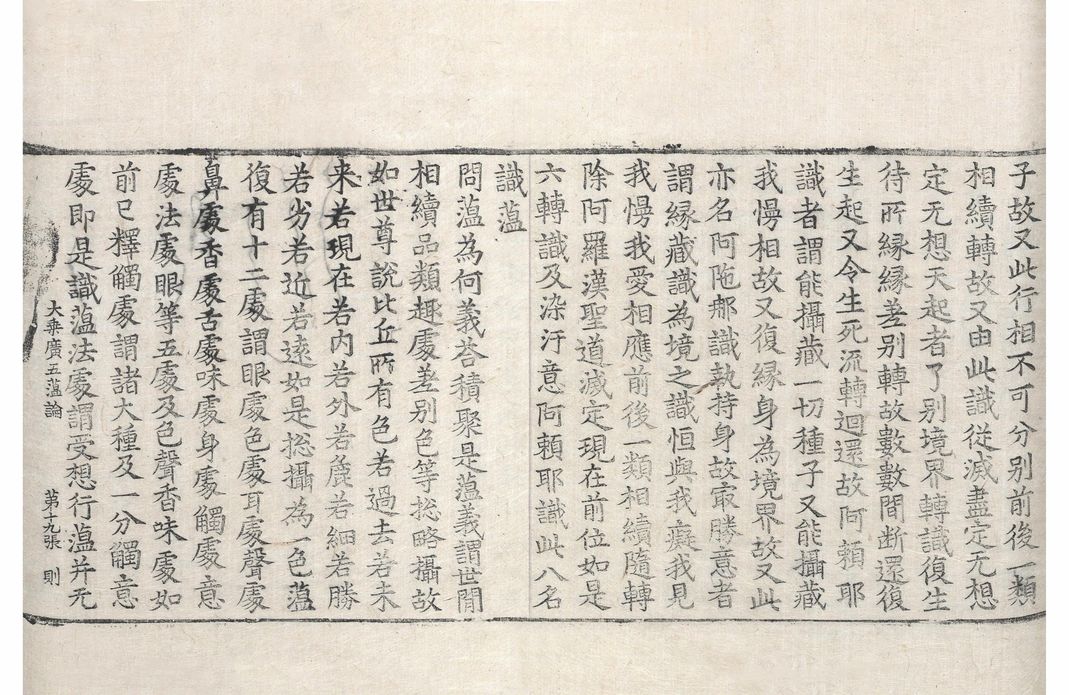 子故又此行相不可分別前後一類
相續轉故又由此識從滅盡定无想
定无想天起者了別境界轉識復生
待所縁縁差別轉故數數間斷還復
生起又令生死流轉迴還故阿頼耶
識者謂能攝藏一切種子又能攝藏
我慢相故又復縁身為境界故又此
亦名阿陁那識執持身故㝡勝意者
謂縁藏識為境之識恒與我癡我見
我慢我愛相應前後一類相續隨轉
除阿羅漢聖道滅定現在前位如是
六轉識及染汙意阿頼耶識此八名
識薀
問薀為何義荅積聚是薀義謂世間
相續品類趣處差別色等惣略攝故
如世尊說比丘所有色若過去若未
来若現在若内若外若麁若細若勝
若劣若近若遠如是惣攝為一色薀
復有十二處謂眼處色處耳處聲處
鼻處香處舌處味處身處觸處意
處法處眼等五處及色聲香味處如
前已釋觸處謂諸大種及一分觸意
處即是識薀法處謂受想行薀并无
大乗廣五薀論 第十九張 則